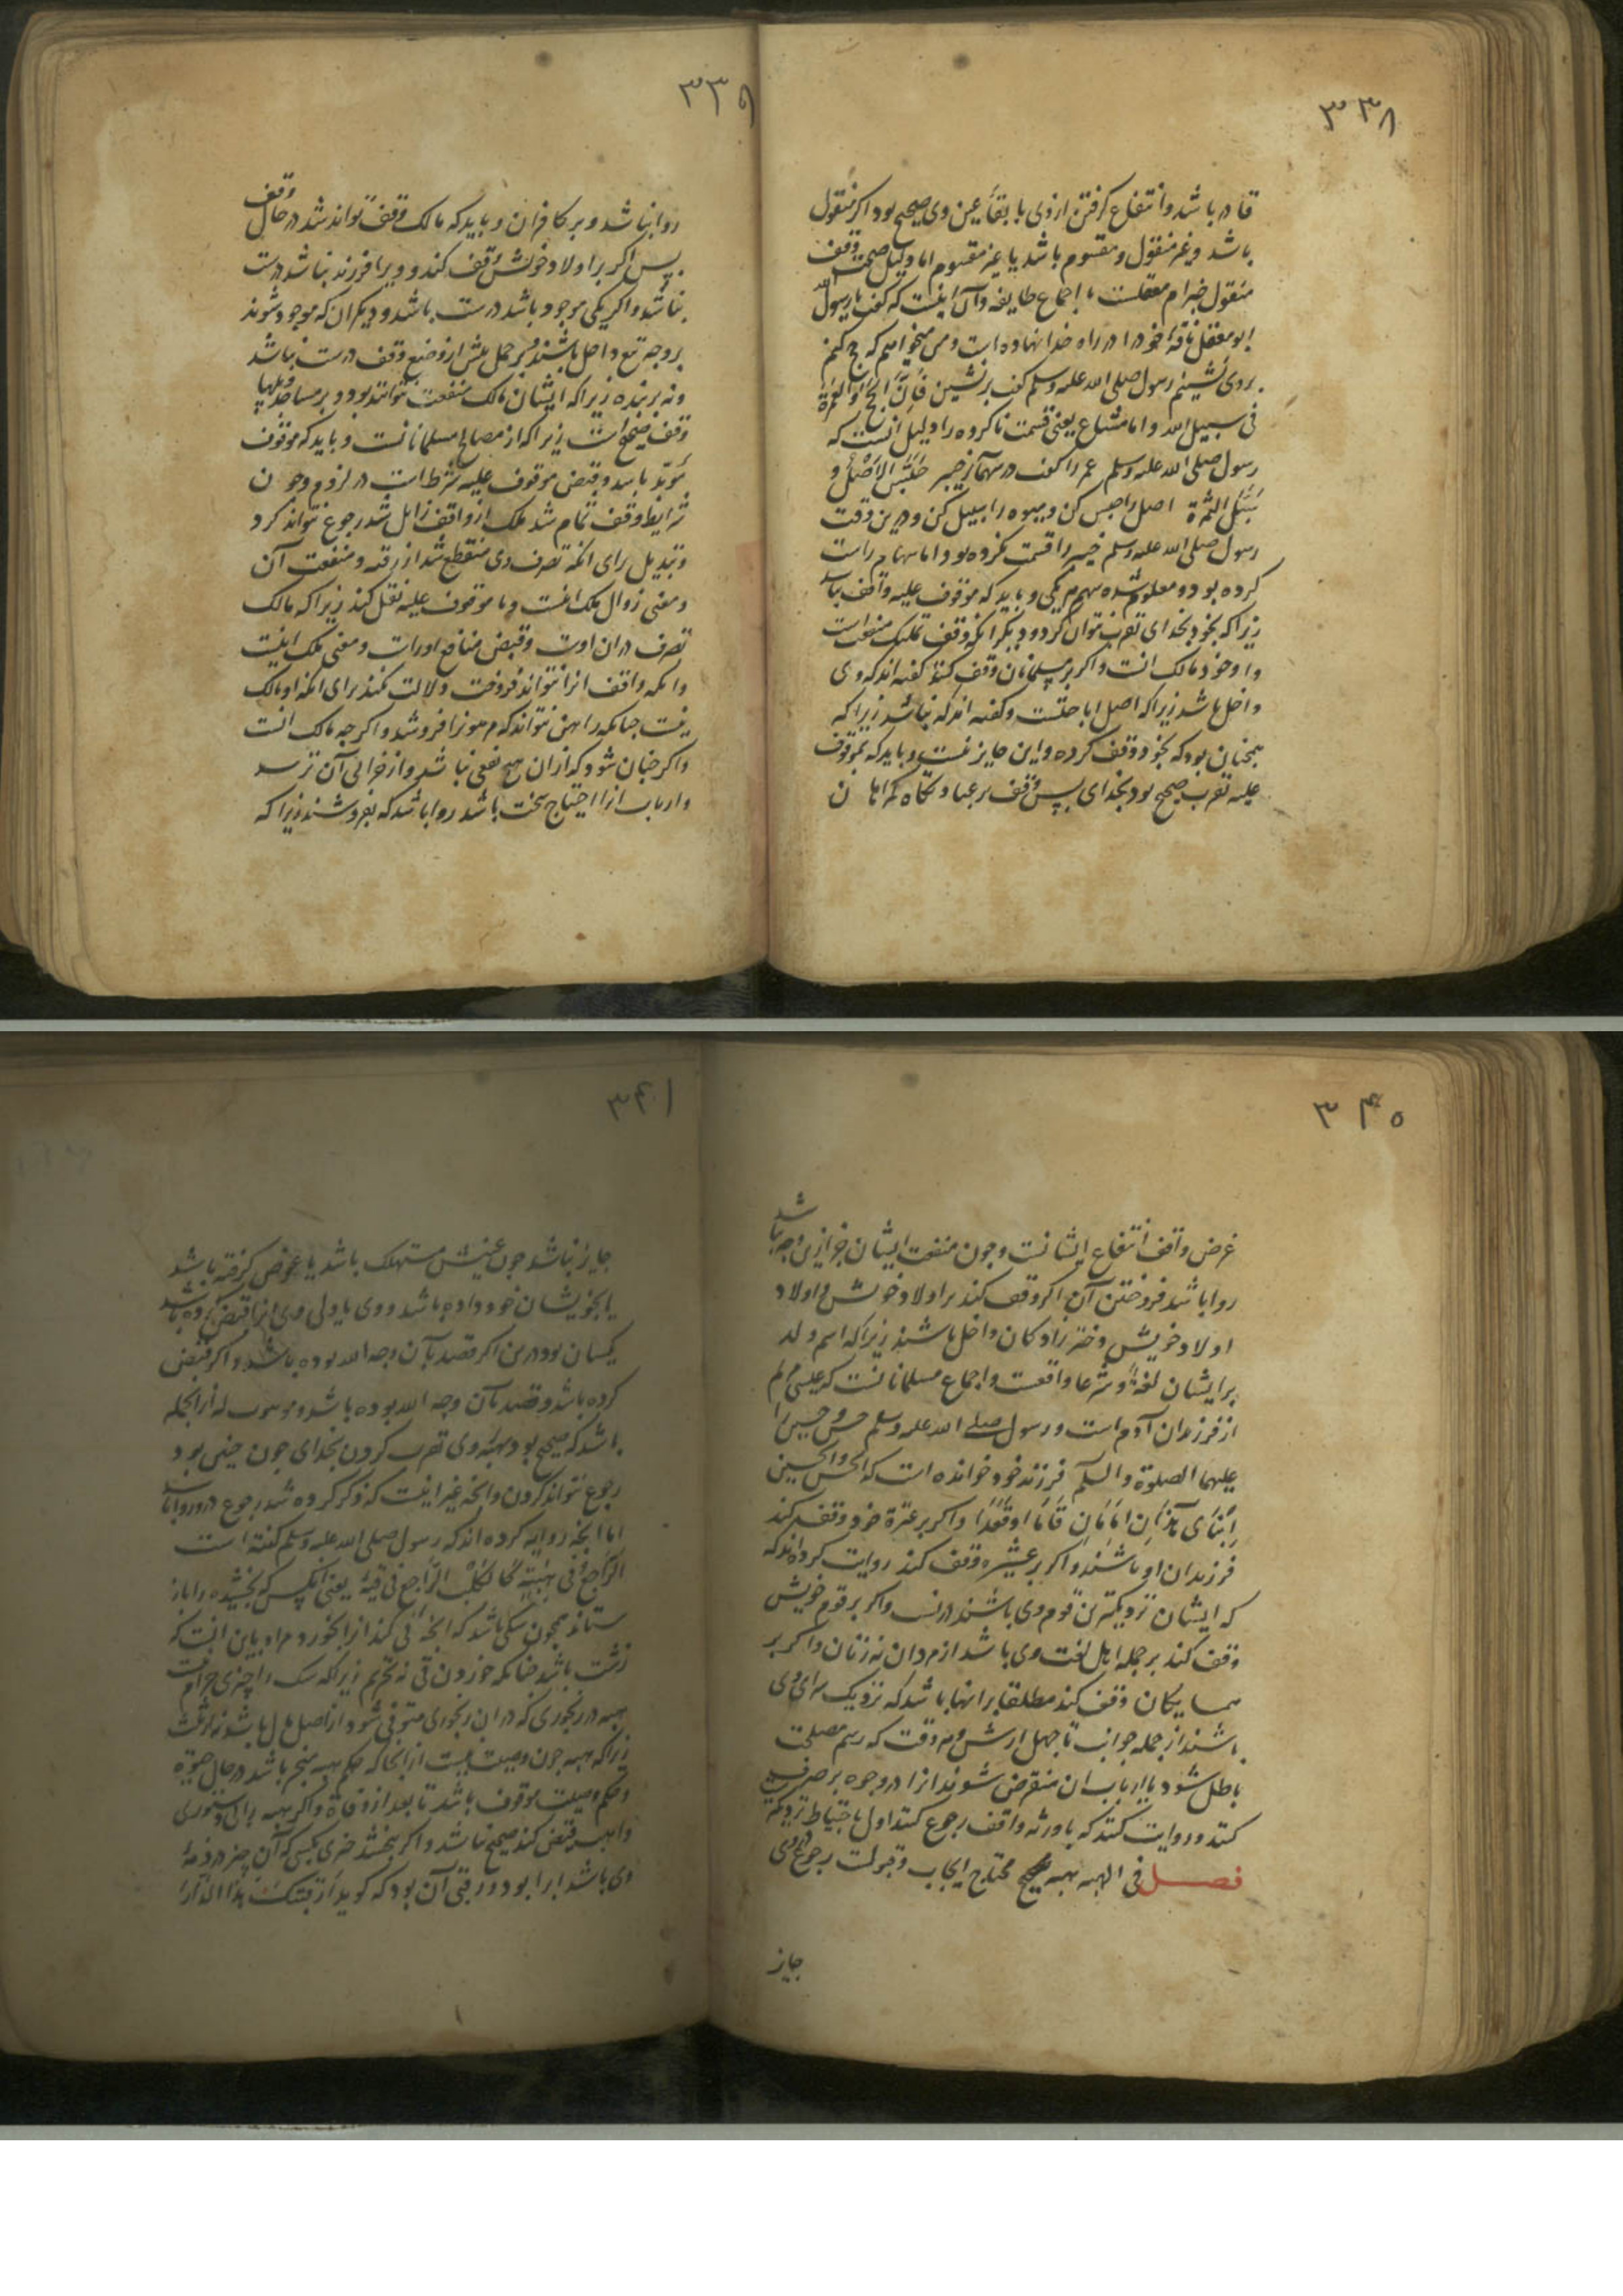 ۳۳۸
قادر باشد وانتفاع کرفتن ازوی با بقاء عین وی صحیح بود اکر منقول
باشد وغیر منقول ومقسوم باشد یا غیر مقسوم اما دلیل صحت وقف
منقول خبر ام معقلست با اجماع طایفه وآن اینست که کفت یا رسول الله
ابو معقل ناقهٔ خود را در راه خدا نهاده است ومن میخواهم که حج کنم
بروی نشینم رسول صلی الله علیه وسلم کفت برنشین فان الحج والعمرة
فی سبیل الله واما مشاع یعنی قسمت ناکرده را دلیل آنست که
رسول صلی الله علیه وسلم عمر را کفت در سهام خیبر حبس الاصل و
سبل الثمرة اصل را حبس کن ومیوه را سبیل کن ودرین وقت
رسول صلی الله علیه وسلم خیبر را قسمت نکرده بود اما سهام راست
کرده بود ومعلوم شده سهم هر یکی وباید که موقوف علیه واقف نباشد
زیرا که بخود بخدای تقرب نتوان کرد ودیکر آنکه وقف تملیک منفعت است
واو خود مالک آنست واکر بر مسلمانان وقف کند کفته اند که وی
داخل باشد زیرا که اصل اباحتست وکفته اند که نباشد زیرا که
همچنان بود که بخود وقف کرده واین جایز نیست وباید که بموقوف
علیه تقرب صحیح بود بخدای پس وقف بر عبادتکاه کمراهان
۳۳۹
روا نباشد وبر کافران وباید که مالک وقف تواند شد در حال وقف
پس اکر بر اولاد خویش وقف کند وویرا فرزند نباشد درست
نباشد واکر یکی موجود باشد درست باشد ودیکران که موجود شوند
بر وجه تبع داخل باشند وبر حمل پیش از وضع وقف درست نباشد
ونه بر بنده زیرا که ایشان مالک منفعت نتوانند بود وبر مساجد وپلها
وقف صحیح است زیرا که از مصالح مسلمانانست وباید که موقوف
مؤبد باشد وقبض موقوف علیه شرط است در لزوم وچون
شرایط وقف تمام شد ملک از واقف زایل شد رجوع نتواند کرد
وتبدیل برای آنکه تصرف وی منقطع شد از رقبه ومنفعت آن
ومعنی زوال ملک اینست وبا موقوف علیه نقل کند زیرا که مالک
تصرف در آن اوست وقبض منافع اوراست ومعنی ملک اینست
وآنکه واقف آنرا نتواند فروخت دلالت نکند برای آنکه او مالک
نیست چنانکه راهن نتواند که مرهونرا فروشد واکر چه مالک آنست
واکر چنان شود که از آن هیچ نفعی نباشد واز خرابی آن ترسد
وارباب آنرا احتیاج سخت باشد روا باشد که بفروشند زیرا که
۳۴۰
غرض واقف انتفاع ایشانست وچون منفعت ایشان جز ازین وجه نباشد
روا باشد فروختن آن اکر وقف کند بر اولاد خویش واولاد
اولاد خویش دختر زادکان داخل باشند زیرا که اسم ولد
بر ایشان لغة وشرعا واقعست واجماع مسلمانانست که عیسی مریم
از فرزندان آدم است ورسول صلی الله علیه وسلم حسن وحسین را
علیهما الصلوة والسلم فرزند خود خوانده است که الحسن والحسین
ابنای هذان امامان قاما او قعدا واکر بر عترة خود وقف کند
فرزندان او باشند واکر بر عشیره وقف کند روایت کرده اند که
که ایشان نزدیکترین قوم وی باشند در نسب واکر بر قوم خویش
وقف کند بر جمله اهل لغت وی باشد از مردان نه زنان واکر بر
همسایکان وقف کند مطلقا بر آنها باشد که نزدیک سرای وی
باشند از جمله جوانب تا چهل ارش وهر وقت که رسم مصلحت
باطل شود یا ارباب آن منقرض شوند آنرا در وجوه بر صرف
کنند ودر روایت کنند که با ورثه واقف رجوع کنند اول باحتیاط نزدیکتر
فصل فی الهبه هبه صحیح محتاج ایجاب وقبولست ورجوع در وی
جایز
۳۴۱
جایز نباشد چون عینش مستهلک باشد یا عوض کرفته باشد
یا بخویشان خود داده باشد ووی یا ولی وی آنرا قبض کرده باشد
یکسان بود درین اکر قصد بآن وجه الله بوده باشد واکر قبض
کرده باشد وقصد بآن وجه الله بوده باشد وموهوب له از آنجمله
باشد که صحیح بود بهبهٔ وی تقرب کردن بخدای چون چنین بود
رجوع نتواند کردن وآنچه غیر اینست که ذکر کرده شد رجوع در وی روا باشد
اما آنچه روایة کرده اند که رسول صلی الله علیه وسلم کفته است
الراجع فی هبته کالکلب الراجع فی قیئه یعنی آنکس که بخشیده را باز
ستاند همچون سکی باشد که آنچه قی کند باز آنخورد مراد باین آنست که
زشت باشد چنانکه خوردن قی نه تحریم زیرا که سک را چیزی حرام نیست
هبه در رنجوری که در آن رنجوری متوفی شود از اصل مال باشد نه از ثلث
زیرا که هبه چون وصیت نیست از آنجا که حکم هبه منجز باشد در حال حیوة
وحکم وصیت موقوف باشد تا بعد از وفاة واکر هبه را بی دستوری
واهب قبض کند صحیح نباشد واکر ببخشد چیزی بکسی که آن چیز در ذمهٔ
وی باشد ابرا بود ورقبی آن بود که کوید ارقبتک هذا الدار